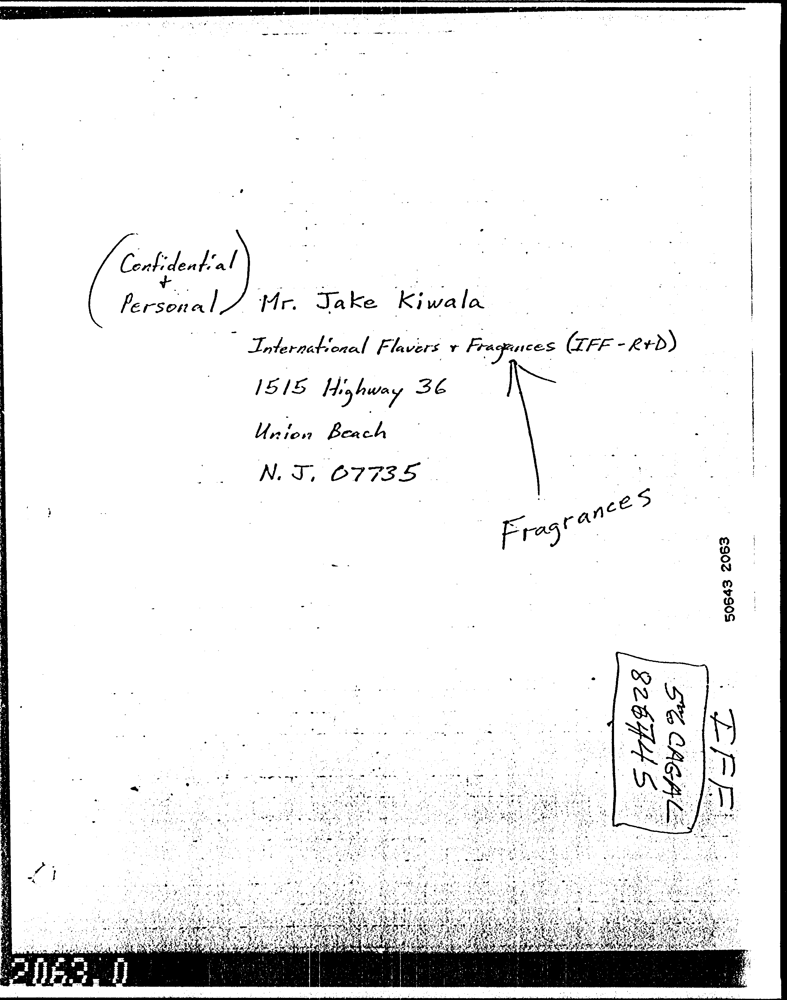 (Confidential
+
Personal)
Mr. Jake Kiwala
International Flavors + Fragances (IFF-R+D)
1515 Highway 36
Union Beach
N. J. 07735
Fragrances
50643 2063
IFF
2063.0